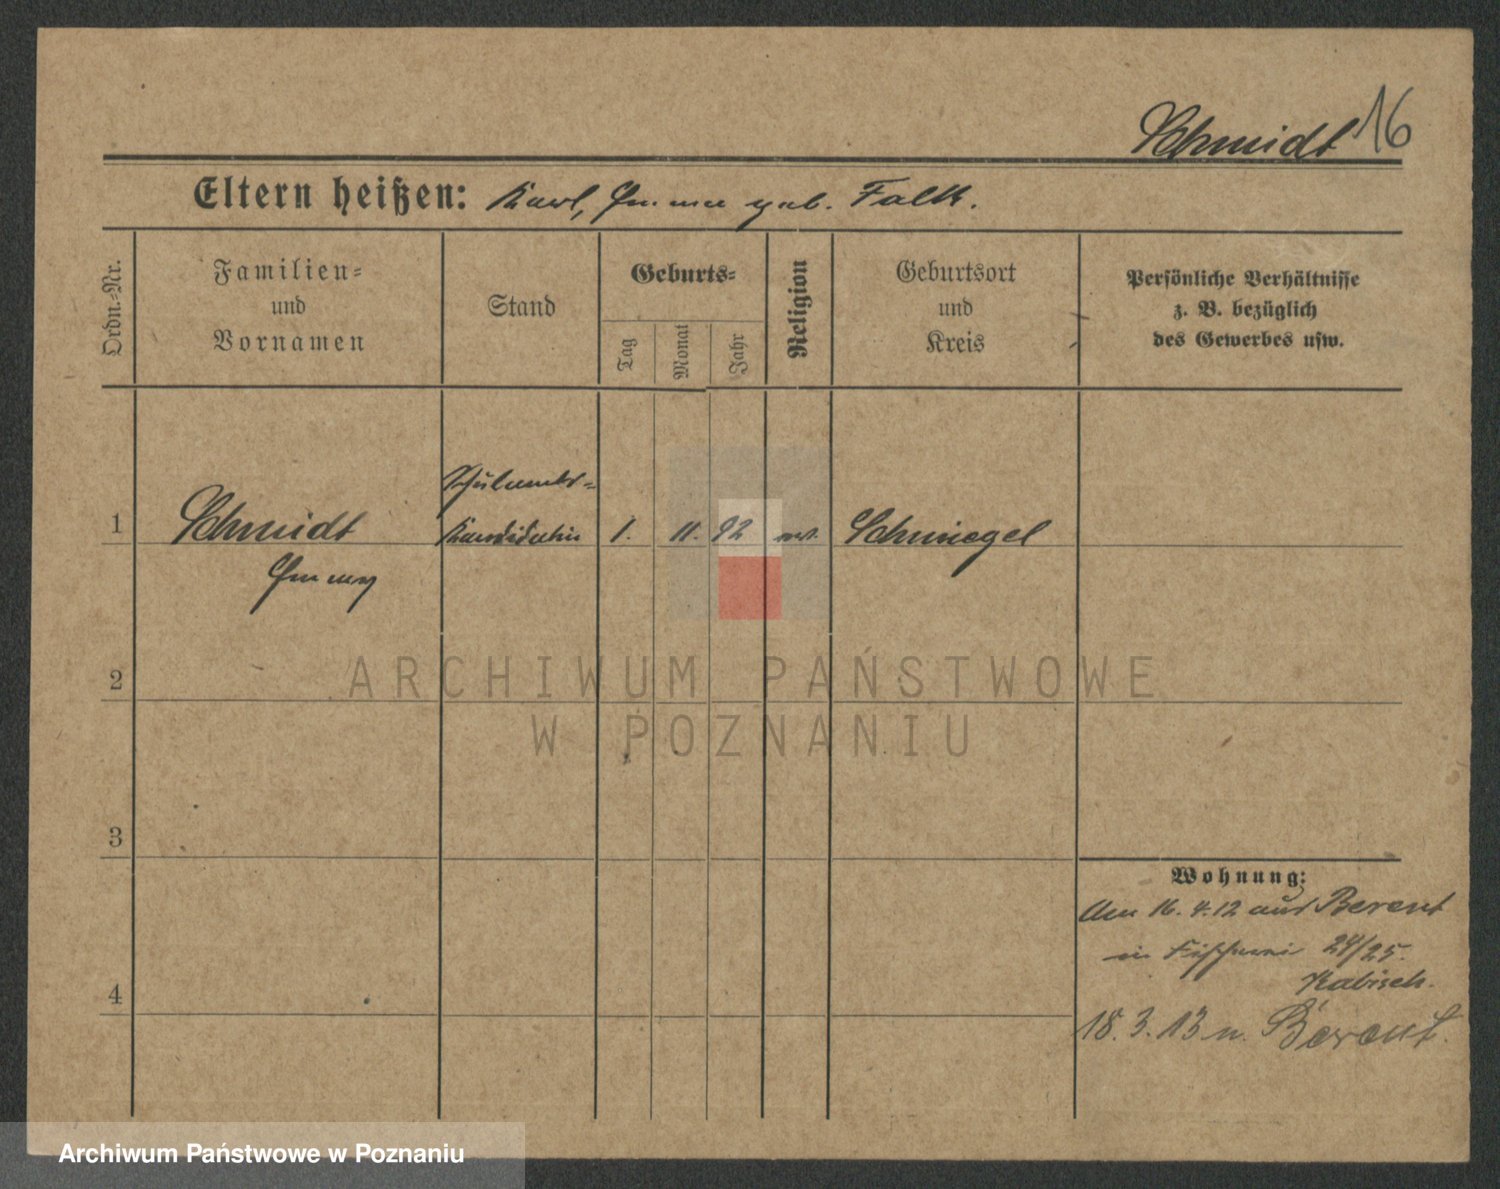 Schmidt 16
Eltern heißen: Karl, Emma geb. Falk.
Ordn.-Nr.
Familien-
und
Vornamen
Stand
Geburts-
Tag
Monat
Jahr
Religion
Geburtsort
und
Kreis
Persönliche Verhältnisse
z. B. bezüglich
des Gewerbes usw.
Schulamts-
1 Schmidt Kandidatin 1. 11. 92 ev. Schmiegel
Emmy
2
3
4
Wohnung:
Am 16.4.12 aus Berent
in Fischerei 24/25.
Kabisch.
18.3.13 n. Berent.
ARCHIWUM PAŃSTWOWE
W POZNANIU
Archiwum Państwowe w Poznaniu